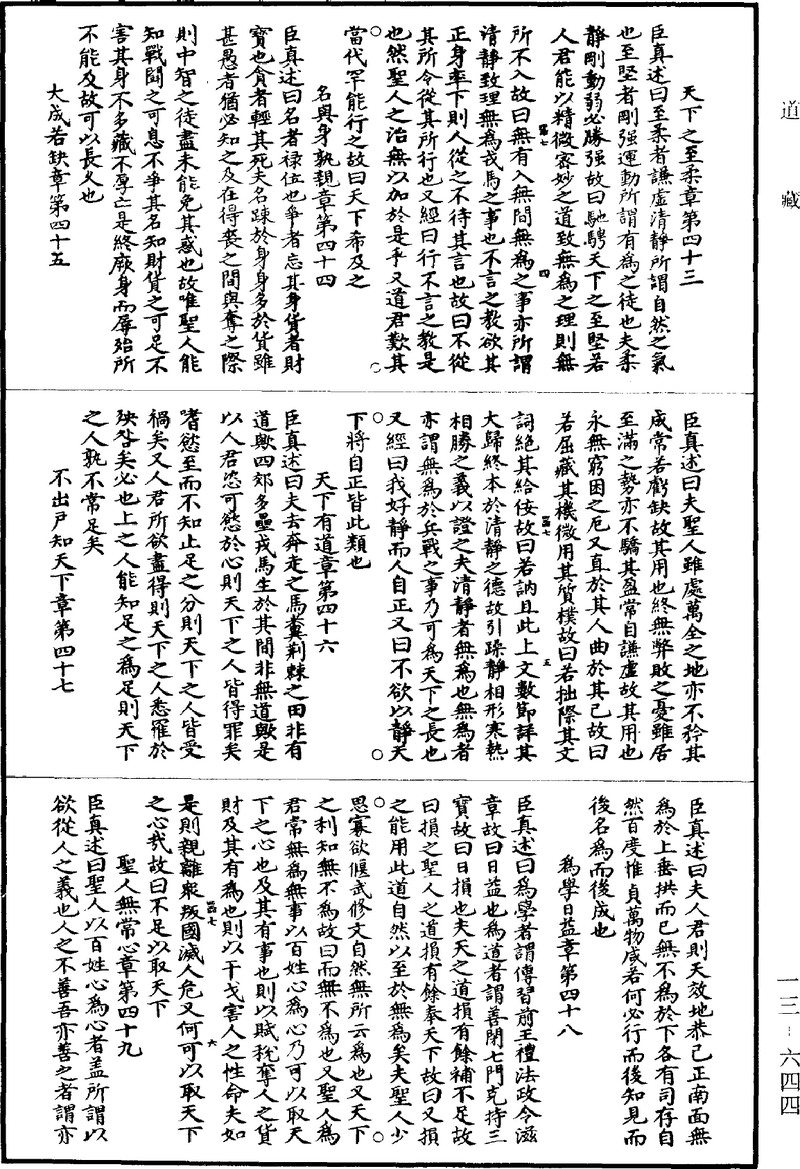 道藏
天下之至柔章第四十三
臣真述曰至柔者謙虛清靜所謂自然之氣
也至堅者剛强運動所謂有為之徒也夫柔
靜剛動弱必勝强故曰馳騁天下之至堅若
人君能以精微密妙之道致無為之理則無
所不入故曰無有入無間無為之事亦所謂
清靜致理無為戎馬之事也不言之教欲其
正身率下則人從之不待其言也故曰不從
其所令從其所行也又經曰行不言之教是
也然聖人之治無以加於是乎又道君歎其
當代罕能行之故曰天下希及之
名與身孰親章第四十四
臣真述曰名者祿位也爭者忘其身貨者財
寶也貪者輕其死夫名踈於身身多於貨雖
甚愚者猶必知之及在得喪之間與奪之際
則中智之徒盡未能免其惑也故唯聖人能
知戰鬪之可息不爭其名知財貨之可足不
害其身不多藏不厚亡是終厥身而辱殆所
不能及故可以長久也
大成若缺章第四十五
臣真述曰夫聖人雖處萬全之地亦不矜其
成常若虧缺故其用也終無弊敗之憂雖居
至滿之勢亦不驕其盈常自謙虛故其用也
永無窮困之厄又直於其人曲於其己故曰
若屈藏其機微用其質樸故曰若拙際其文
詞絕其給佞故曰若訥且此上文數節詳其
大歸終本於清靜之德故引躁靜相形寒熱
相勝之義以證之夫清靜者無為也無為者
亦謂無為於兵戰之事乃可為天下之長也
又經曰我好靜而人自正又曰不欲以靜天
下將自正皆此類也
天下有道章第四十六
臣真述曰夫去奔走之馬糞荆棘之田非有
道歟四郊多壘戎馬生於其間非無道歟是
以人君恣可慾於心則天下之人皆得罪矣
嗜慾至而不知止足之分則天下之人皆受
禍矣又人君所欲盡得則天下之人悉罹於
殃咎矣必也上之人能知足之為足則天下
之人孰不常足矣
不出戶知天下章第四十七
臣真述曰夫人君則天效地恭己正南面無
為於上垂拱而已無不為於下各有司存自
然百度惟貞萬物咸若何必行而後知見而
後名為而後成也
為學日益章第四十八
臣真述曰為學者謂傳習前王禮法政令滋
章故曰日益也為道者謂善閉七門克持三
寶故曰日損也夫天之道損有餘補不足故
曰損之聖人之道損有餘奉天下故曰又損
之能用此道自然以至於無為矣夫聖人少
思寡欲偃武修文自然無所云為也又天下
之利知無不為故曰而無不為也又聖人為
君常無為無事以百姓心為心乃可以取天
下之心也及其有事也則以賦稅奪人之貨
財及其有為也則以干戈害人之性命夫如
是則親離衆叛國滅人危又何可以取天下
之心哉故曰不足以取天下
聖人無常心章第四十九
臣真述曰聖人以百姓心為心者蓋所謂以
欲從人之義也人之不善吾亦善之者謂亦
四
五
六
一三—六四四